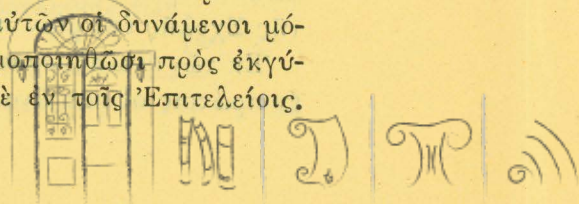 αὐτῶν οἱ δυνάμενοι μό-
μοποιηθῶσι πρὸς ἐκγύ-
ὲ ἐν τοῖς Ἐπιτελείοις.